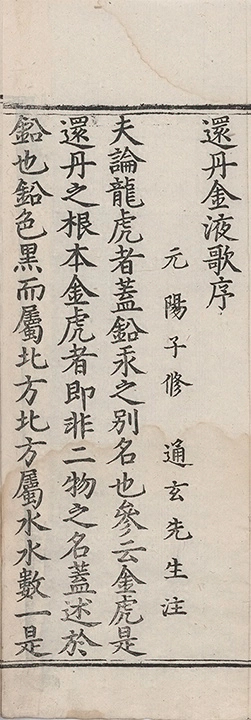 還丹金液歌序
元陽子修　通玄先生注
夫論龍虎者蓋鉛汞之别名也參云金虎是
還丹之根本金虎者即非二物之名蓋述於
鉛也鉛色黑而屬北方北方屬水水數一是